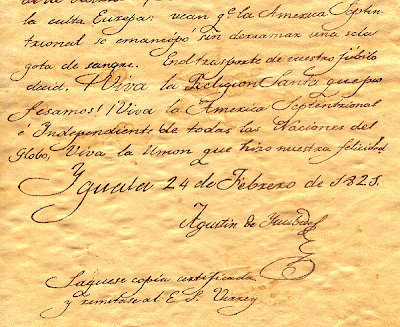 la culta Europa: vean qe. la America Septen
trional se emancipó sin derramar una sola
gota de sangre. En el trasporte de vuestro jubilo
decid. ¡Viva la Religion Santa que pro
fesamos! ¡Viva la America Septentrional
é Independiente de todas las Naciones del
Globo, Viva la Union que hizo nuestra felicidad
Yguala 24 de Febrero de 1821.
Agustin de Iturbide
Saquese copia certificada
y remitase al E S. Virrey